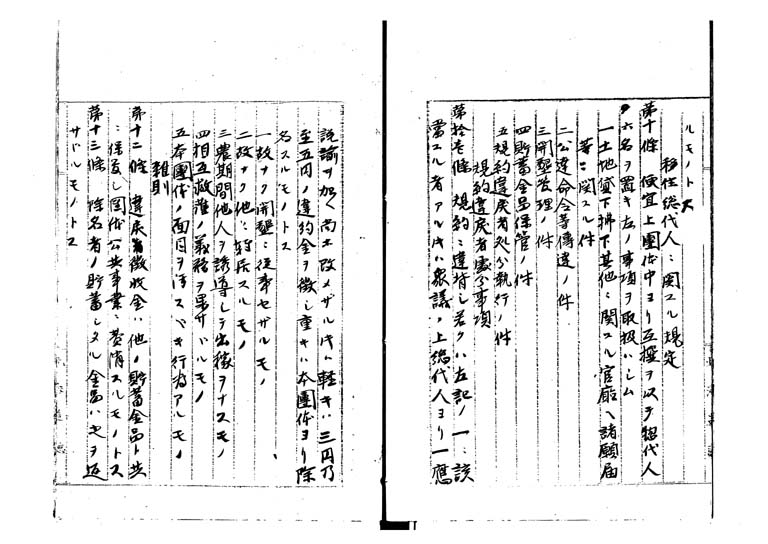 ルモノトス
移住総代人ニ関スル規定
第十條 便宜上團体中ヨリ互撰ヲ以テ惣代人
六名ヲ置キ左ノ事項ヲ取扱ハシム
一土地貸下拂下其他ニ関スル官廰ヘ諸願届
等ニ関スル件
二公達命令等傳達ノ件
三開墾管理ノ件
四貯蓄金品保管ノ件
五規約違戻者処分執行ノ件
規約違戻者處分事項
第拾壱條 規約ニ違背シ若クハ左記ノ一ニ該
當スル者アルトキハ衆議ノ上総代人ヨリ一應
説諭ヲ加ヘ尚ホ改メザルトキハ軽キハ三円乃
至五円ノ違約金ヲ徴シ重キハ本團体ヨリ除
名スルモノトス
一故ナク開墾ニ従事セザルモノ
二故ナク他ニ轉居スルモノ
三農期間他人ヲ誘導シテ出稼ヲナスモノ
四相互救護ノ義務ヲ果サヾルモノ
五本團体ノ面目ヲ汚スベキ行為アルモノ
雜則
第十二條 違戻者徴收金ハ他ノ貯蓄金品ト共
ニ保存シ團体公共事業ニ費消スルモノトス
第十三條 除名者ノ貯蓄シタル金品ハ之ヲ返
サヾルモノトス